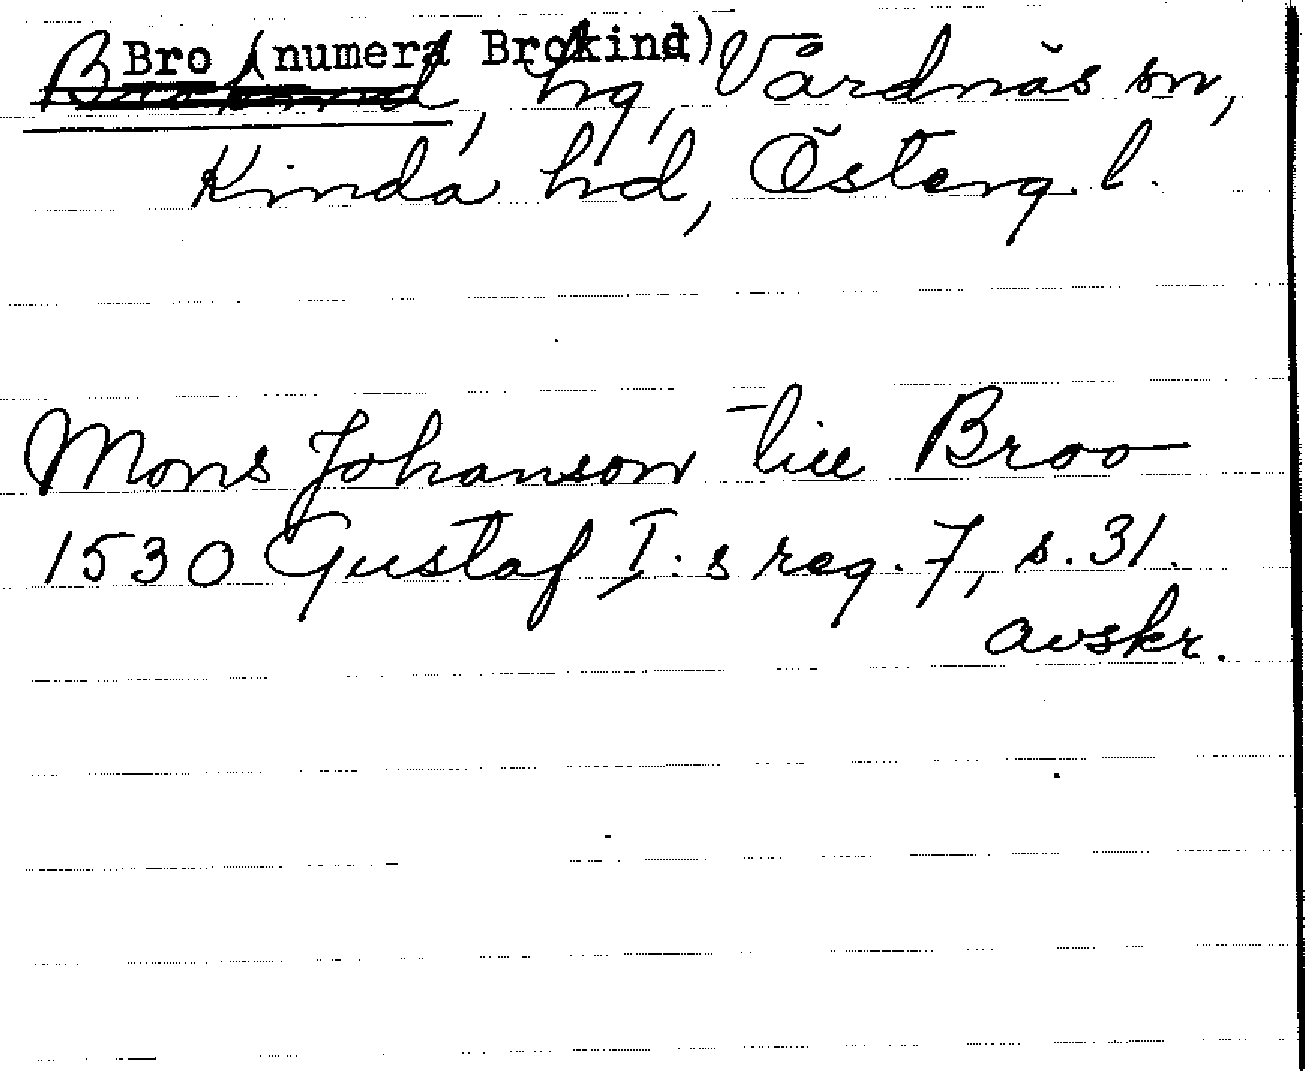 Bro (numera Brokind)
Brokind, hg, Vårdnäs sn,
Kinda hd, Österg. l.
Mons Johanson till Broo
1530 Gustaf I:s reg. 7, s. 31.
avskr.